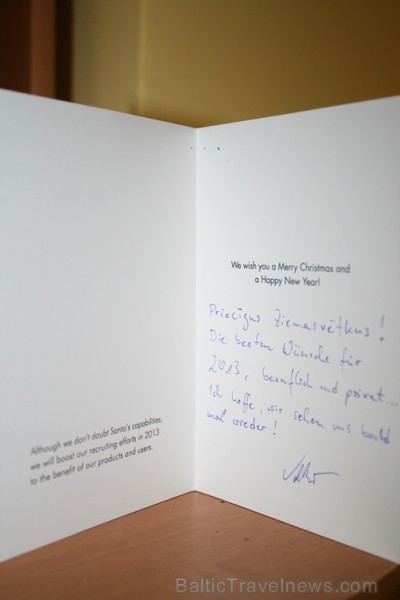 Although we don't doubt Santa's capabilities,
we will boost our recruiting efforts in 2013
to the benefit of our products and users.
We wish you a Merry Christmas and
a Happy New Year!
Priecīgus Ziemasvētkus!
Die besten Wünsche für
2013, beruflich und privat...
Ich hoffe, wir sehen uns bald
mal wieder!
BalticTravelnews.com